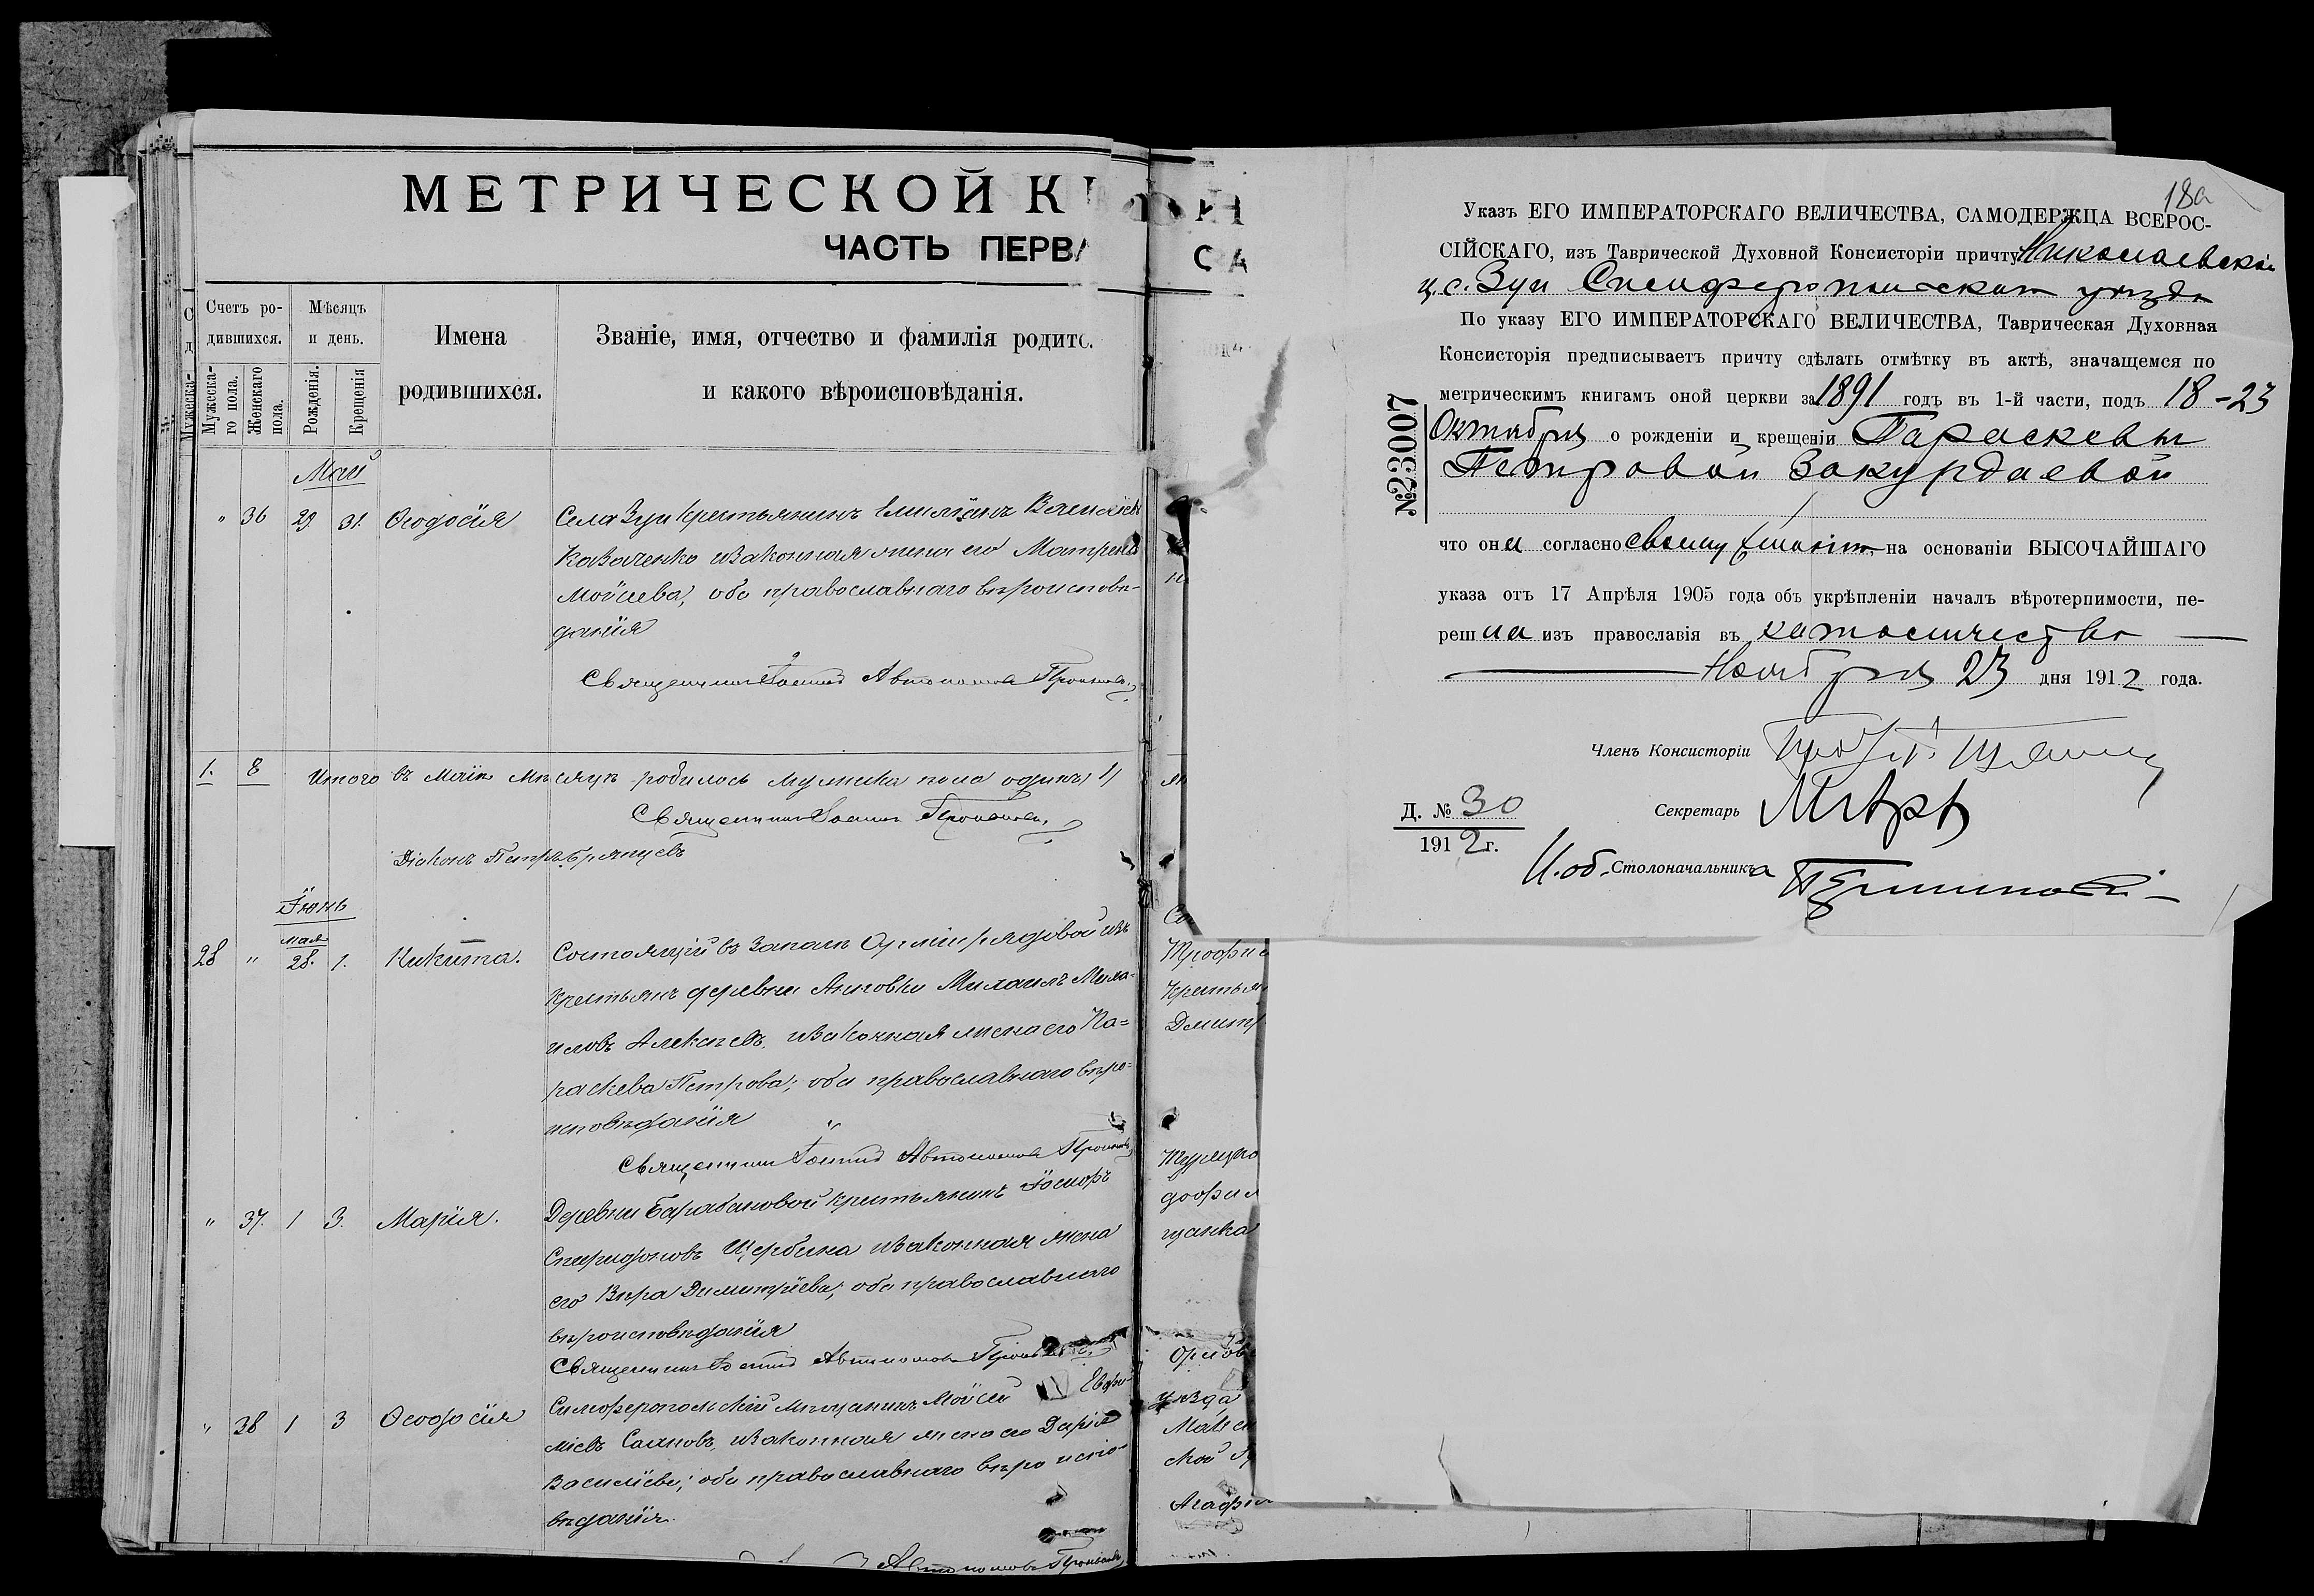 МЕТРИЧЕСКОЙ К
ЧАСТЬ ПЕРВА
Счетъ ро-
дившихся.
Мужеска-
го пола.
Женскаго
пола.
Мѣсяцъ
и день.
Рожденія.
Крещенія
Имена
родившихся.
Званіе, имя, отчество и фамилія родите
и какого вѣроисповѣданія.
Май
" 36 29 31. Ѳеодосія
Села Зуи крестьянинъ
Коваленко и законная жена его Матрена
Мойсева, оба православнаго вѣроисповѣ-
данія
Священникъ Автономов
1. 8 Итого въ Маѣ мѣсяцѣ родилось мужска пола одинъ, 1,
Священникъ
Діаконъ Петръ Брянцевъ
Іюнь
28 " мая 28. 1. Никита.
Состоящій въ запасѣ Арміи рядовой изъ
крестьянъ деревни Михаилъ Миха-
иловъ Алексѣевъ, и законная жена его Па-
раскева Петрова; оба православнаго вѣро-
исповѣданія
Священникъ Автономов
" 37. 1 3. Марія.
Деревни Барабановой крестьянинъ Іосифъ
Спиридоновъ Щербина и законная жена
его Вѣра Димитріева, оба православнаго
вѣроисповѣданія
Священникъ Автономов
" 38 1 3 Ѳеодосія
Симферопольскій мѣщанинъ Мойсей Евфи-
міевъ и законная жена его Дарія
Василіева; оба православнаго вѣроиспо-
вѣданія.
Автономовъ
СА
Трофи
Крестья
Дмитр
щанка
уѣзда
Агафі
18а
Указъ ЕГО ИМПЕРАТОРСКАГО ВЕЛИЧЕСТВА, САМОДЕРЖЦА ВСЕРОС-
СІЙСКАГО, изъ Таврической Духовной Консисторіи причту Николаевской
ц. с. Зуи Симферопольскаго уѣзда
По указу ЕГО ИМПЕРАТОРСКАГО ВЕЛИЧЕСТВА, Таврическая Духовная
Консисторія предписываетъ причту сдѣлать отмѣтку въ актѣ, значащемся по
метрическимъ книгамъ оной церкви за 1891 годъ въ 1-й части, подъ 18-23
Октября о рожденіи и крещеніи Параскевы
Петровой Закурдаевой
№23007
что она согласно своему на основаніи ВЫСОЧАЙШАГО
указа отъ 17 Апрѣля 1905 года объ укрѣпленіи началъ вѣротерпимости, пе-
решла изъ православія въ католичество
Ноября 23 дня 1912 года.
Членъ Консисторіи
Секретарь
Д. № 30
1912 г.
И. об. Столоначальника